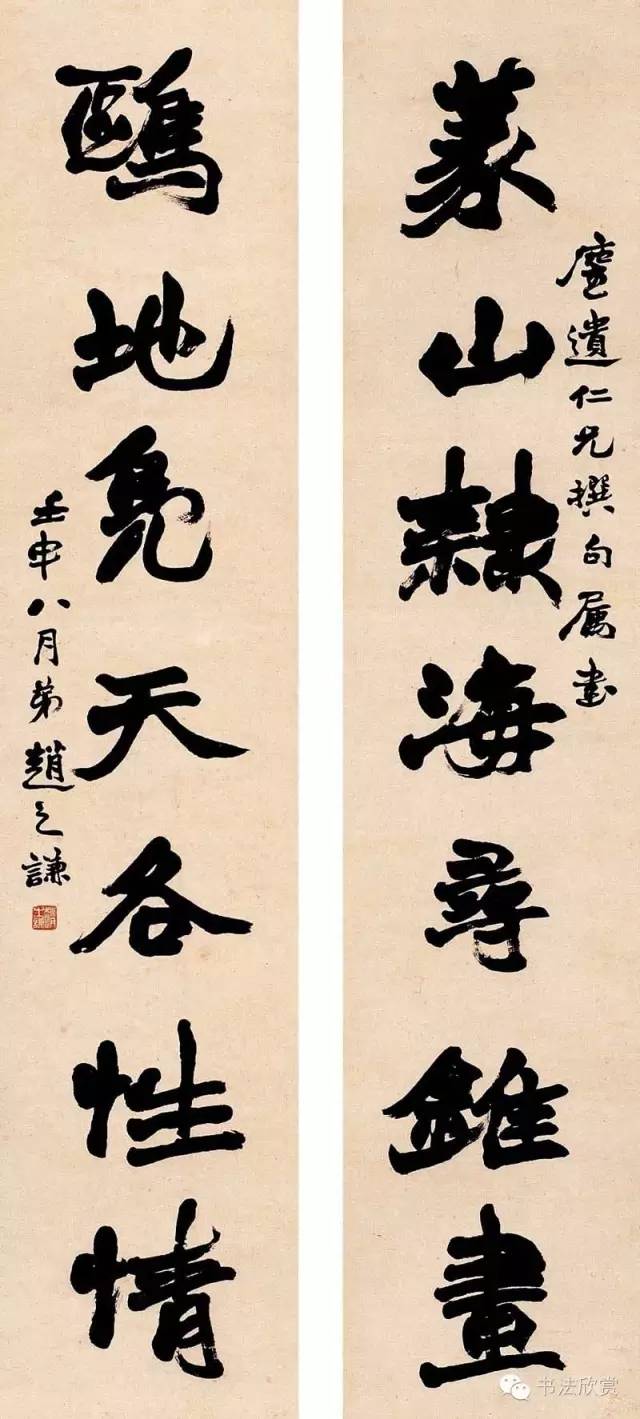 篆山隸海尋錐畫
遺仁兄撰句属書
鷗地鳧天各性情
壬申八月弟趙之謙
书法欣赏